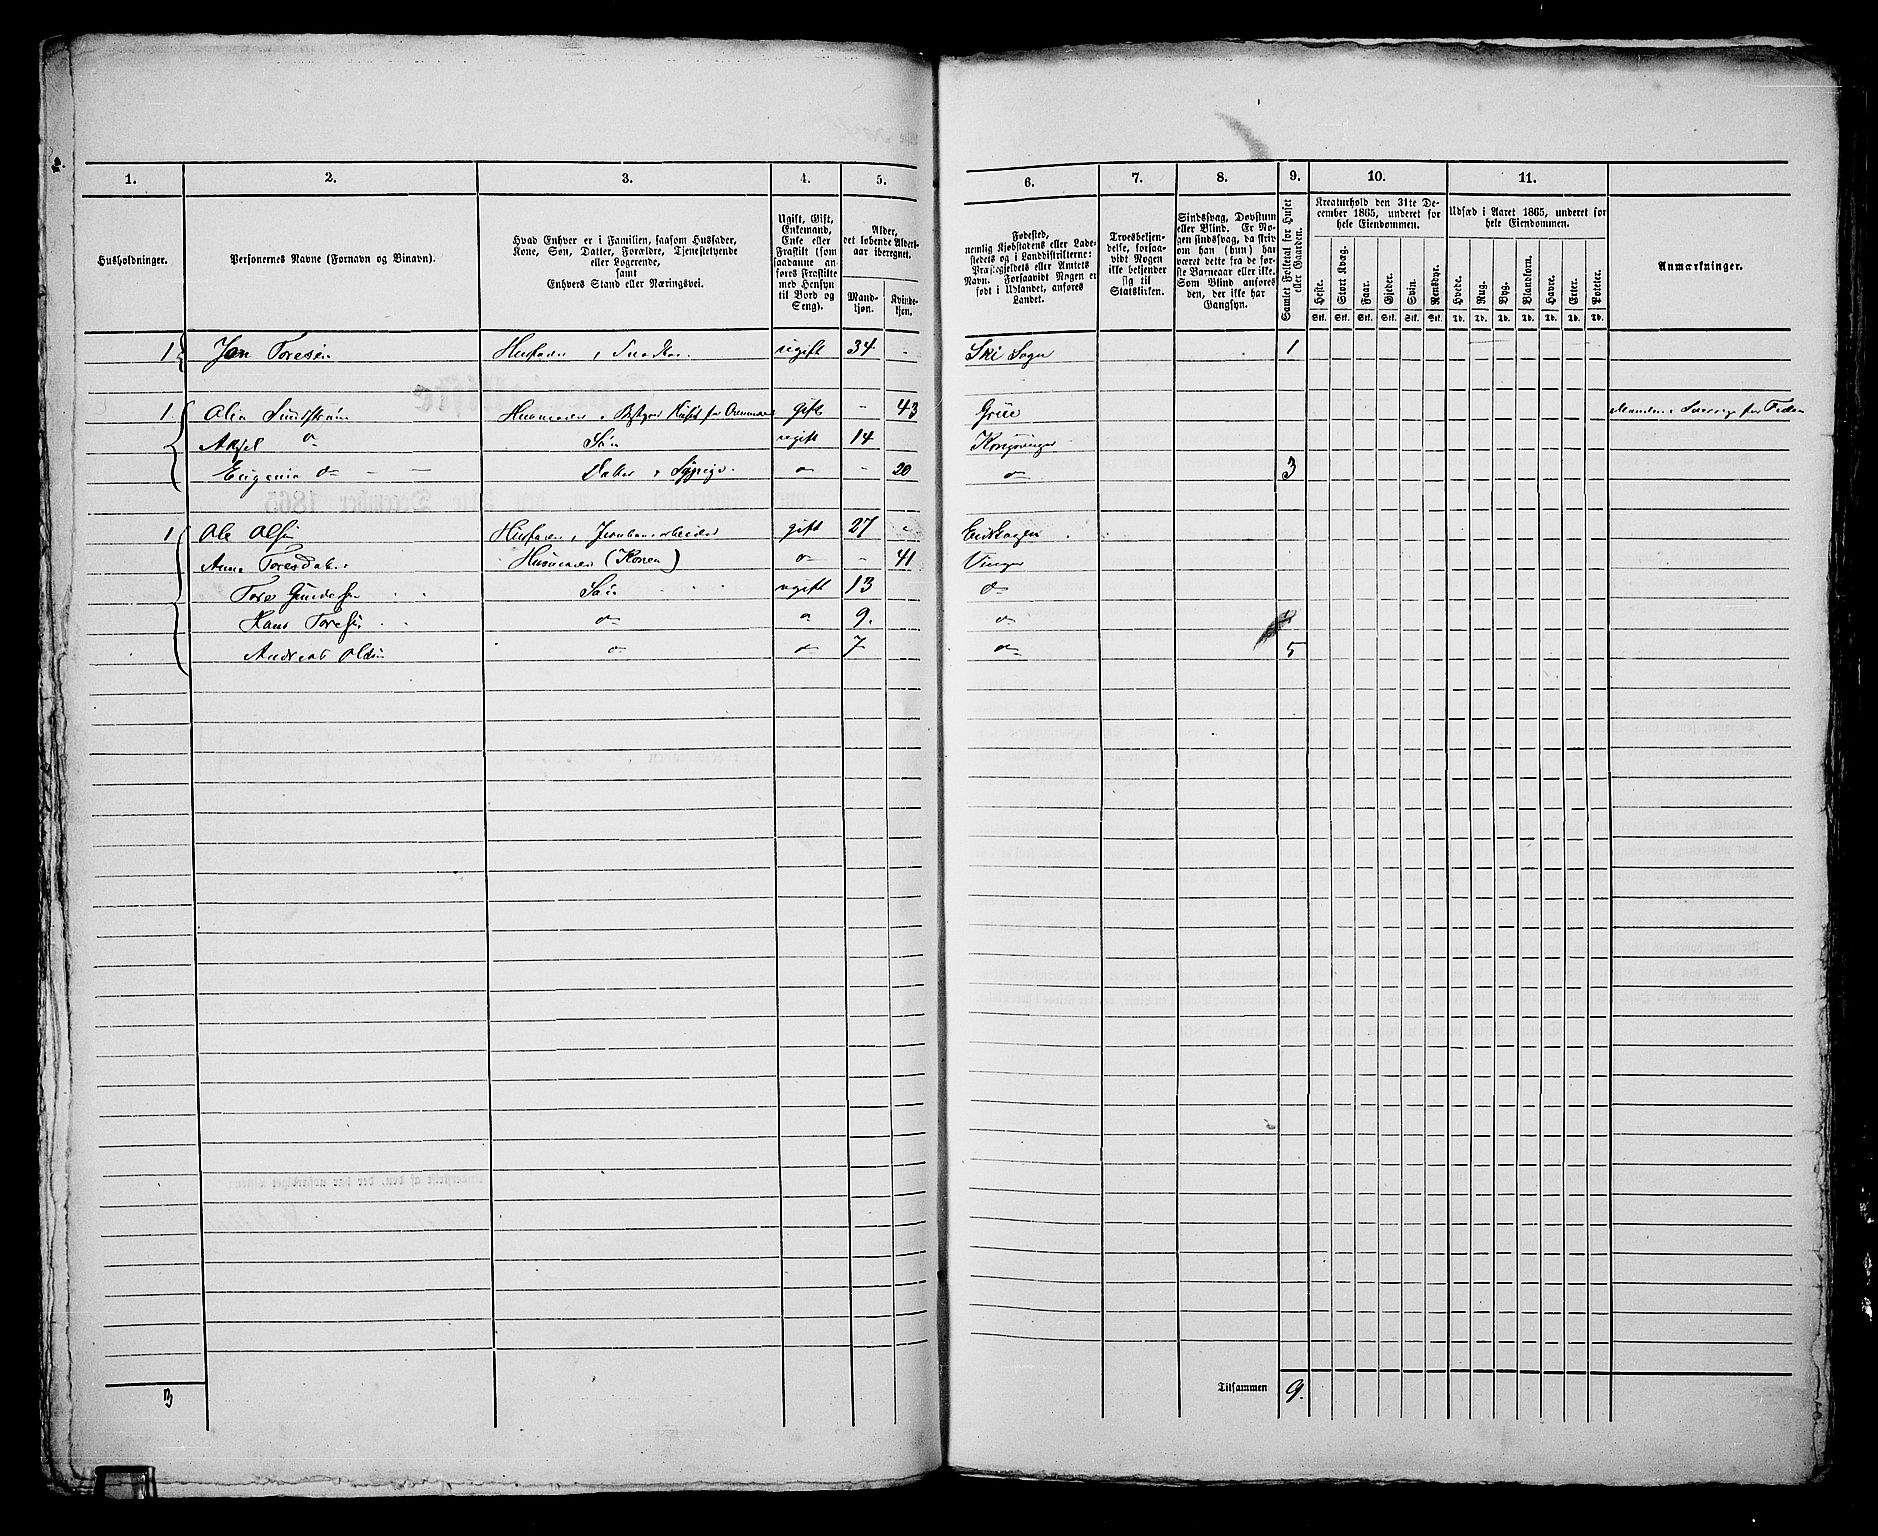 1. 2. 3. 4. 5. 6. 7. 8. 9. 10. 11.
Husholdninger.
Personernes Navne (Fornavn og Binavn).
Hvad Enhver er i Familien, saasom Husfader,
Kone, Søn, Datter, Forældre, Tjenestetyende
eller Logerende,
samt
Enhvers Stand eller Næringsvei.
Ugift, Gift,
Enkemand,
Enke eller
Fraskilt (som
saadanne anføres Fraskilte
med Hensyn
til Bord og
Seng).
Alder,
det løbende Aldersaar iberegnet.
Mandkjøn.
Kvindekjøn.
Fødested,
nemlig Kjøbstadens eller Ladestedets og i Landdistrikterne:
Præstegjeldets eller Amtets
Navn. Forsaavidt Nogen er
født i Udlandet, anføres
Landet.
Troesbekjendelse, forsaavidt Nogen
ikke bekjender
sig til
Statskirken.
Sindssvag, Døvstum
eller Blind. Er Nogen sindssvag, da skrives
om han (hun) har
været dette fra de første Barneaar eller ikke.
Som Blind anføres
den, der ikke har
Gangsyn.
Samlet Folketal for Huset
eller Gaarden.
Kreaturhold den 31te December 1865, underet for
hele Eiendommen.
Heste. Stort Kvæg. Faar. Gjeder. Svin. Rensdyr.
Stk. Stk. Stk. Stk. Stk. Stk.
Udsæd i Aaret 1865, underet for
hele Eiendommen.
Hvede. Rug. Byg. Blandkorn. Havre. Erter. Poteter.
Td. Td. Td. Td. Td. Td. Td.
Anmærkninger.
1 Jon Toresen Husfader, Snedker ugift 34 - Ski Sogn 1
1 Olia Sundstrøm Husmoder, Bestyrer Huset for gift - 43 Grue Manden i Sverrig for Tiden
Aksel do Søn ugift 14 Kongsvinger
Eugenia do Datter, Sypige do - 20 do 3
1 Ole Olsen Husfader, Jernbanearbeider gift 27 - Eidskogen
Anne Toresdatter Husmoder (Konen) do - 41 Vinger
Tore Gundersen Søn ugift 13 do
Hans Toresen do do 9. do
Andreas Olsen do do 7 do 5
3
Tilsammen 9.